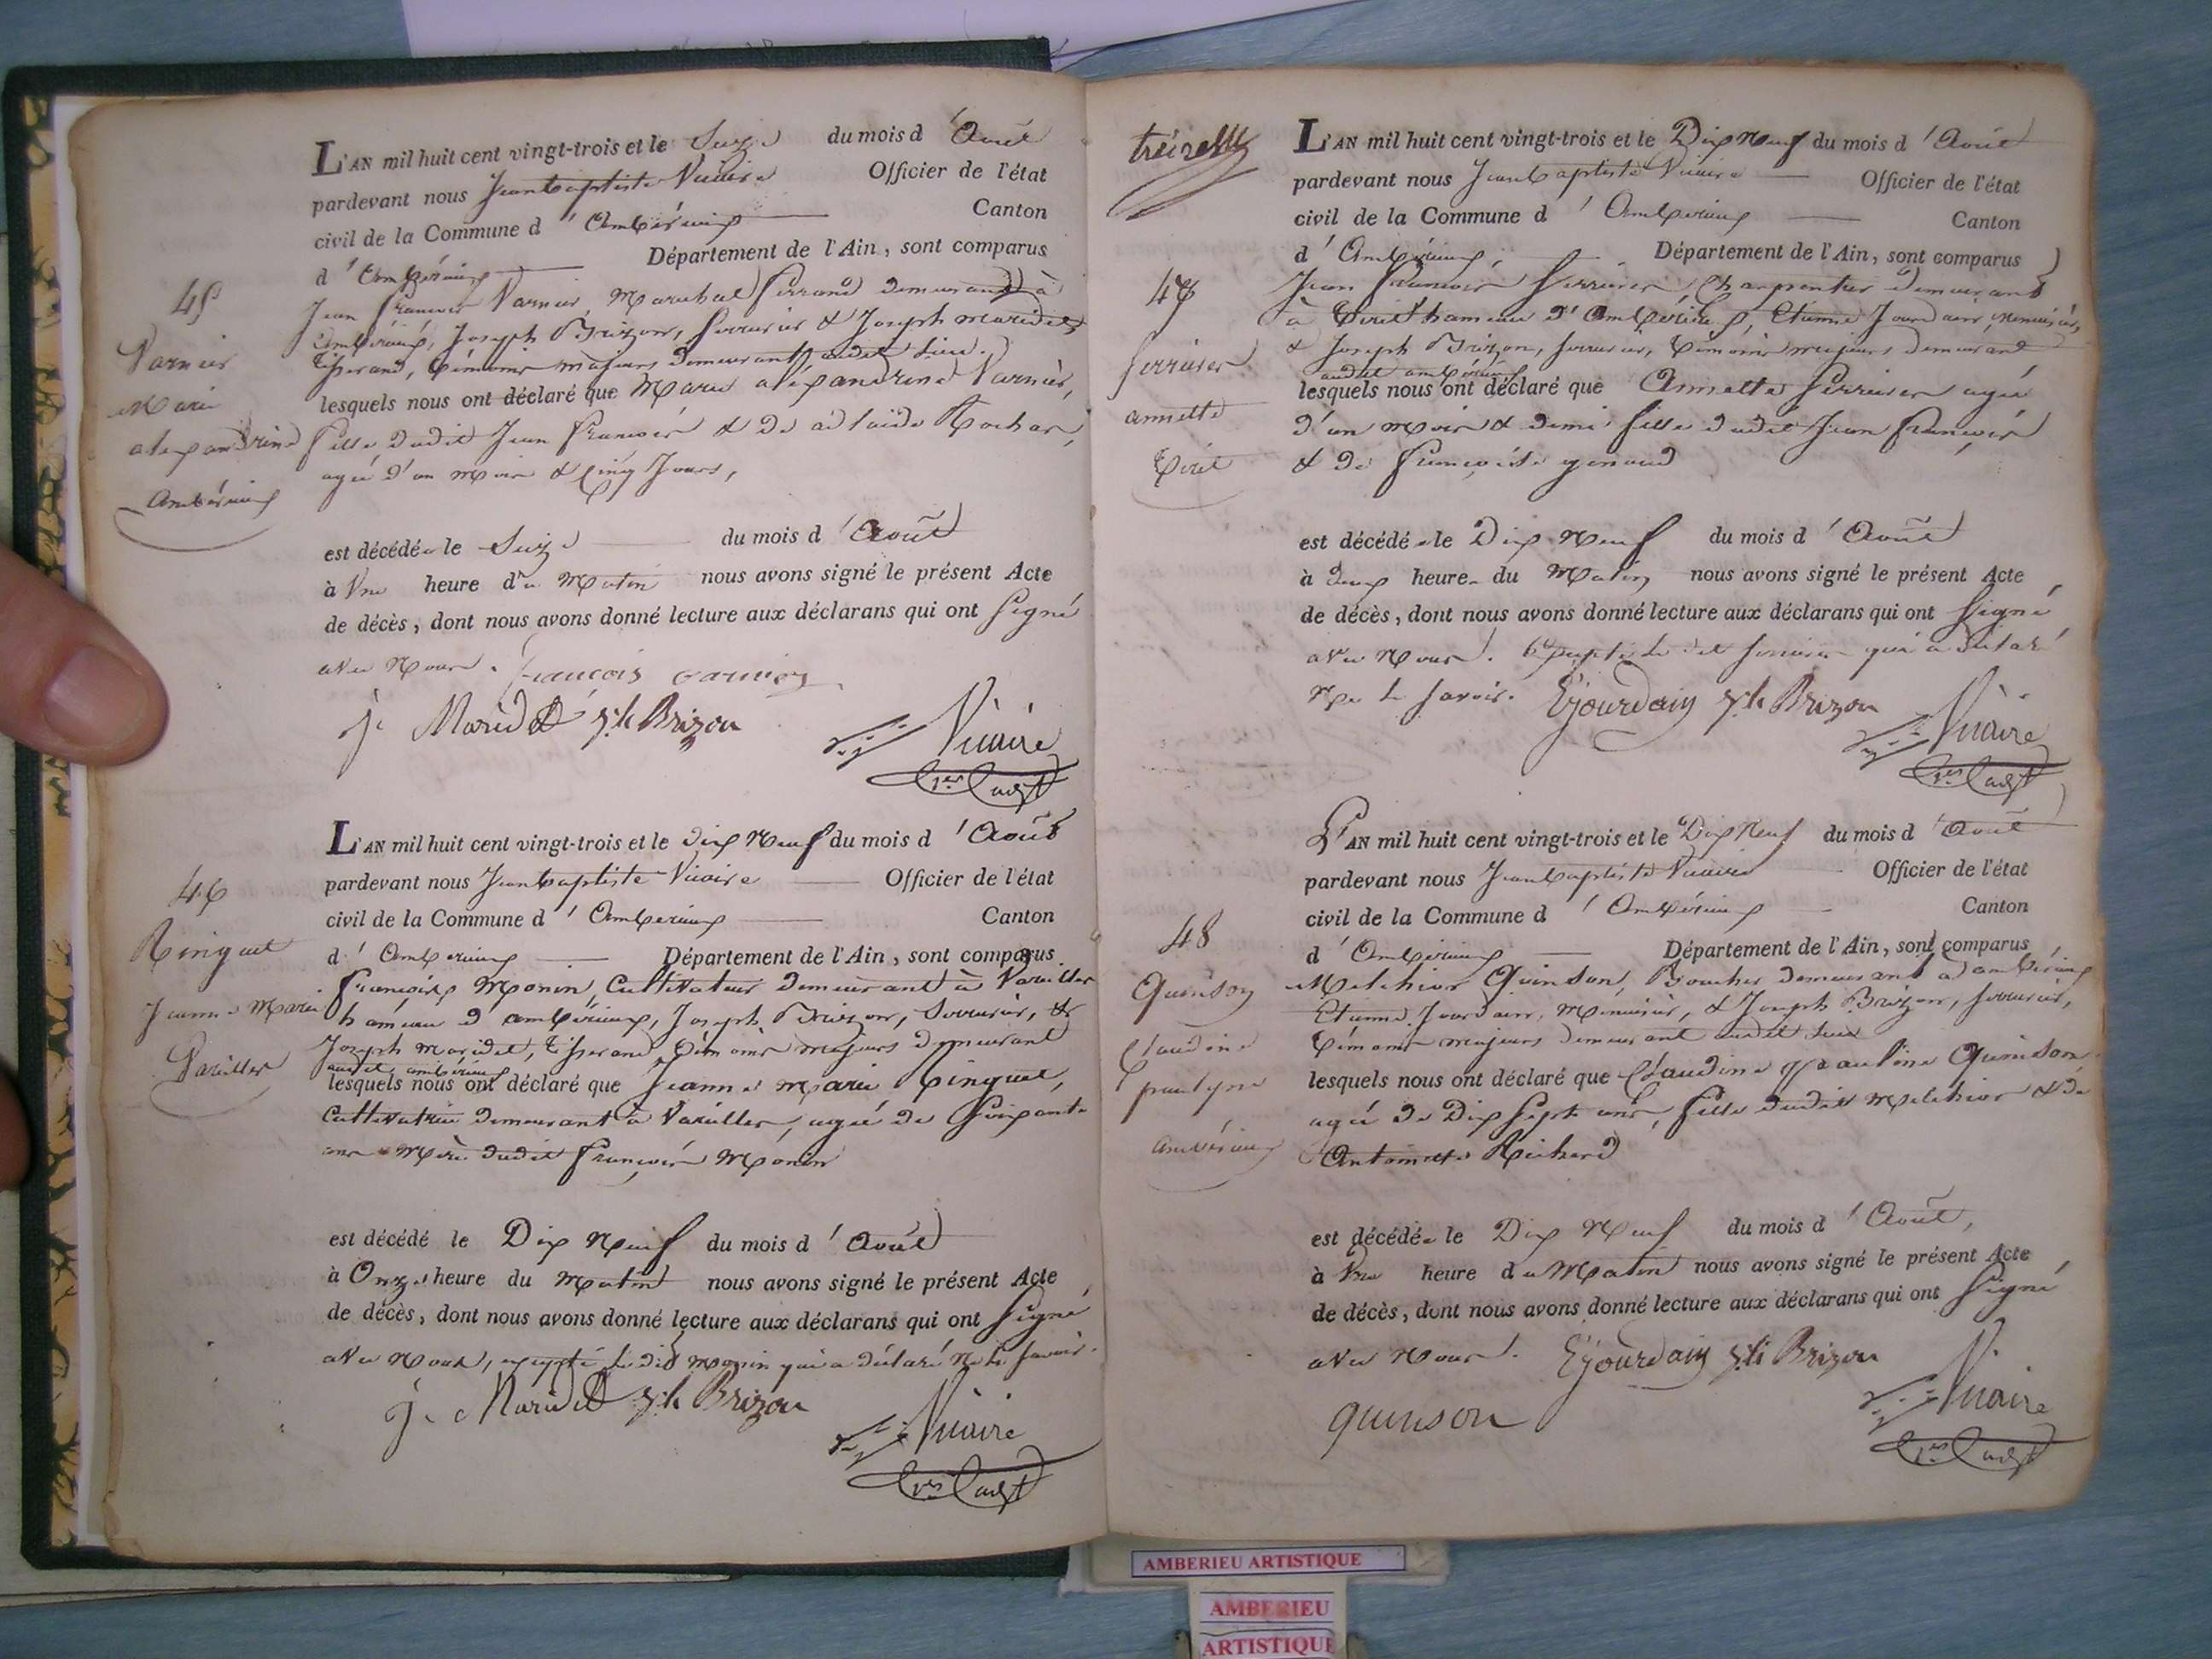 45
Varnier
Marie
alexandrine
Ambérieux
L'AN mil huit cent vingt-trois et le Seize du mois d'Août
pardevant nous Jean baptiste Vicaire Officier de l'état
civil de la Commune d'Ambérieux Canton
d'Ambérieux Département de l'Ain, sont comparus
Jean françois Varnier, Marechal ferrand demeurant à
Ambérieux, Joseph Brizon, serrurier & Joseph maridet
tisserand, témoins majeurs demeurant audit lieu.
lesquels nous ont déclaré que Marie alexandrine Varnier,
fille dudit Jean françois & de adelaide Rochas,
agée d'un mois & cinq Jours,
est décédée le Seize du mois d'Août
à Une heure du Matin nous avons signé le présent Acte
de décès, dont nous avons donné lecture aux déclarans qui ont signé
avec Nous. françois varnier
j. Maridet Jh Brizon Vicaire
1er adjt
46
Ringuet
Jeanne Marie
Vareilles
L'AN mil huit cent vingt-trois et le dix Neuf du mois d'Août
pardevant nous Jean baptiste Vicaire Officier de l'état
civil de la Commune d'Ambérieux Canton
d'Ambérieux Département de l'Ain, sont comparus
françois Monin, Cultivateur demeurant à Vareilles
hameau d'ambérieux, Joseph Brizon, Serrurier, &
Joseph maridet, tisserand témoins majeurs demeurant
audit ambérieux
lesquels nous ont déclaré que Jeanne Marie Ringuet,
Cultivatrice demeurant à Vareilles, agée de soixante
ans Mère dudit françois Monin
est décédé le Dix Neuf du mois d'Août
à Onze heure du Matin nous avons signé le présent Acte
de décès, dont nous avons donné lecture aux déclarans qui ont signé
avec Nous, excepté ledit Monin qui a déclaré ne le savoir.
j. Maridet Jh Brizon Vicaire
1er adjt
treizième
47
ferrier
annette
Tiret
L'AN mil huit cent vingt-trois et le Dix Neuf du mois d'Août
pardevant nous Jean baptiste Vicaire Officier de l'état
civil de la Commune d'Ambérieux Canton
d'Ambérieux, Département de l'Ain, sont comparus
Jean francois Charpentier demeurant
à Tiret hameau d'Ambérieux, Etienne Jourdain, Menuisier,
& Joseph Brizon, serrurier, témoins majeurs demeurant
audit ambérieux
lesquels nous ont déclaré que Annette agée
d'un mois & demi fille dudit Jean françois
& de françoise genoud
est décédée le Dix Neuf du mois d'Août
à deux heure du Matin nous avons signé le présent Acte
de décès, dont nous avons donné lecture aux déclarans qui ont signé
avec Nous. excepté ledit qui a déclaré
Ne le savoir. E Jourdain Jh Brizon Vicaire
1er adjt
48
Quinson
Claudine
pauline
Ambérieux
L'AN mil huit cent vingt-trois et le Dix Neuf du mois d'Août
pardevant nous Jean baptiste Vicaire Officier de l'état
civil de la Commune d'Ambérieux Canton
d'Ambérieux Département de l'Ain, sont comparus
Melchior Quinson, Boucher demeurant à ambérieux
Etienne Jourdain, Menuisier, & Joseph Brizon, serrurier,
témoins majeurs demeurant audit lieu
lesquels nous ont déclaré que Claudine pauline Quinson
agée de Dix Sept ans, fille dudit Melchior & de
Antoinette Richard
est décédée le Dix Neuf du mois d'Août,
à Une heure du Matin nous avons signé le présent Acte
de décès, dont nous avons donné lecture aux déclarans qui ont signé
avec Nous. E Jourdain Jh Brizon
quinson Vicaire
1er adjt
AMBERIEU ARTISTIQUE
AMBERIEU
ARTISTIQUE